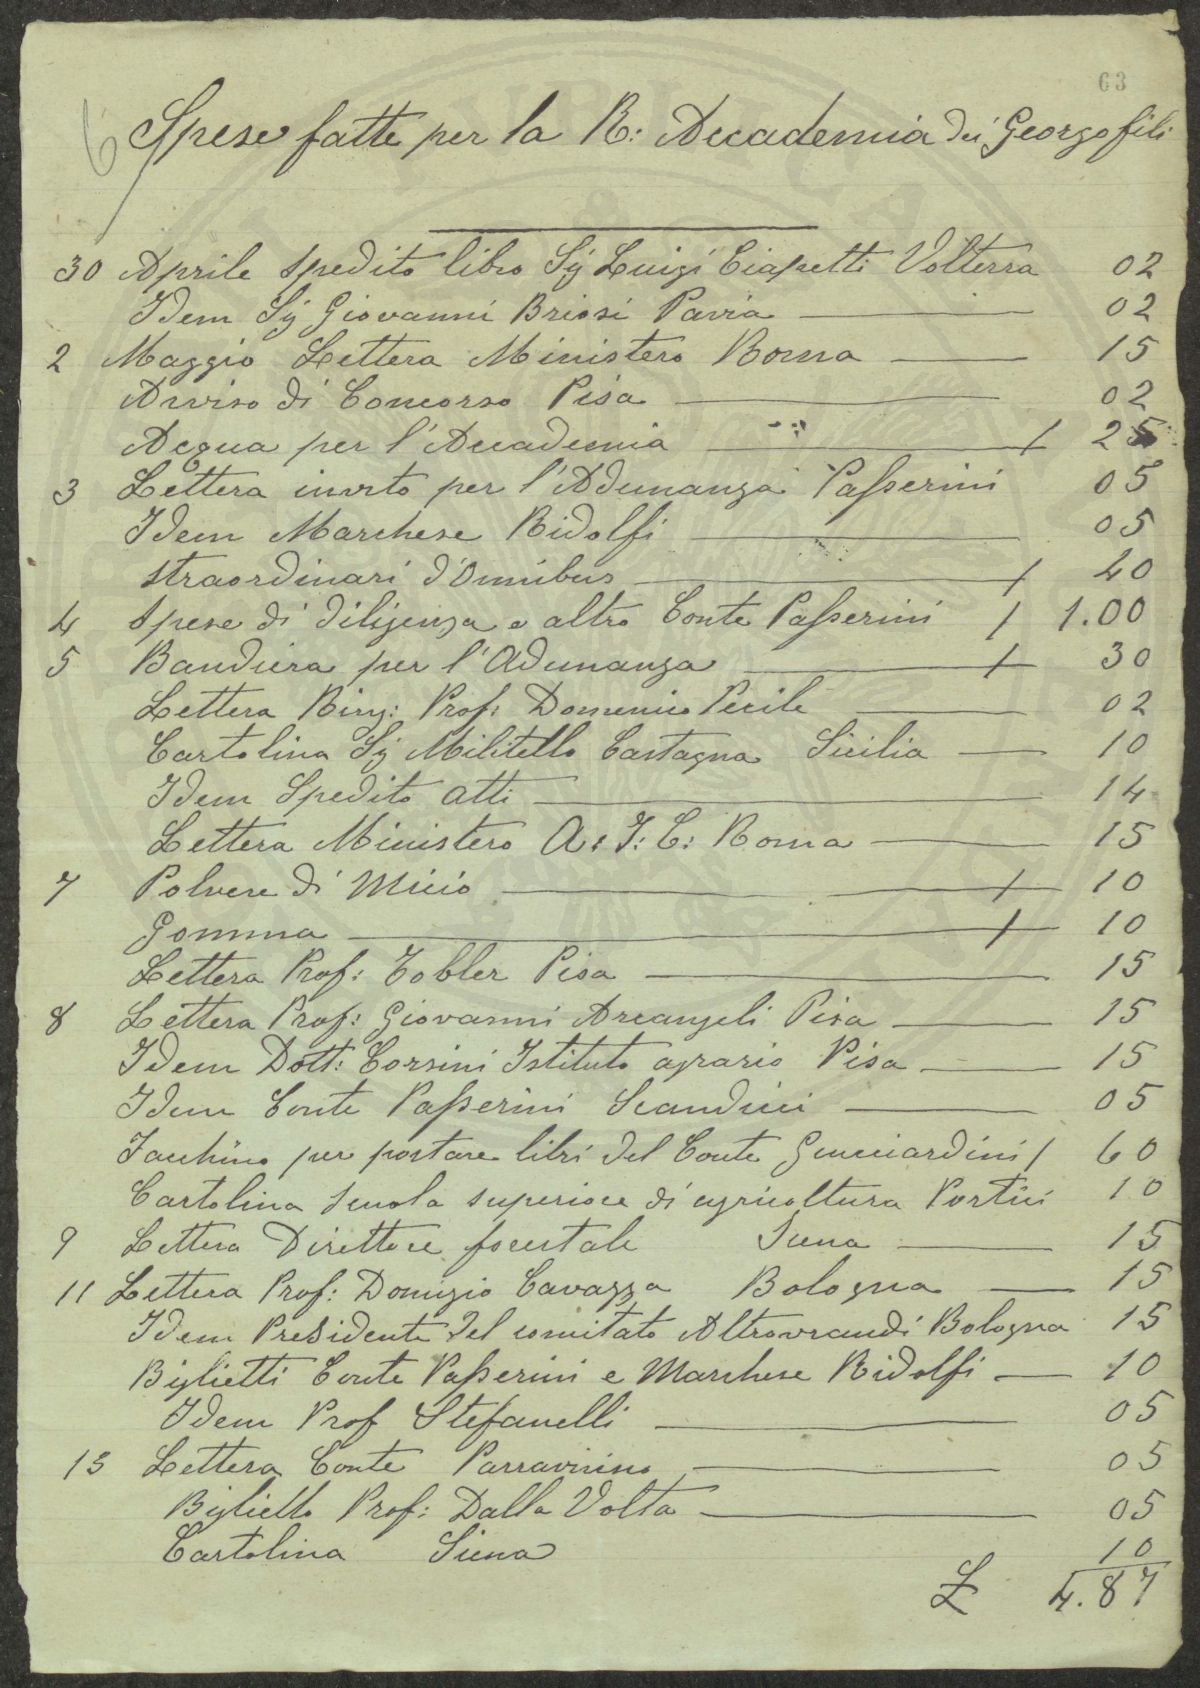 63
6 Spese fatte per la R: Accademia dei Georgofili
30 Aprile spedito libro Sig Luigi Ciapetti Volterra 02
Idem Sig Giovanni Briosi Pavia 02
2 Maggio Lettera Ministero Roma 15
Avviso di Concorso Pisa 02
Acqua per l'Accademia / 25
3 Lettera invito per l'Adunanza Passerini 05
Idem Marchese Ridolfi 05
straordinari d'Omnibus / 40
4 Spese di diligenza e altro Conte Passerini / 1.00
5 Bandiera per l'Adunanza / 30
Lettera Ring: Prof: Domenico Pecile 02
Cartolina Sig Militello Castagna Sicilia 10
Idem Spedito atti 14
Lettera Ministero A: I: C: Roma 15
7 Polvere di Micio / 10
Gomma / 10
Lettera Prof: Tobler Pisa 15
8 Lettera Prof: Giovanni Arcangeli Pisa 15
Idem Dott: Corsini Istituto agrario Pisa 15
Idem Conte Passerini Scandicci 05
Facchino per portare libri del Conte Guicciardini / 60
Cartolina Scuola superiore di agricoltura Portici 10
9 Lettera Direttore forestale Siena 15
11 Lettera Prof: Domizio Cavazza Bologna 15
Idem Presidente del comitato Altrovrandi Bologna 15
Biglietti Conte Passerini e Marchese Ridolfi 10
Idem Prof Stefanelli 05
13 Lettera Conte Parravicino 05
Biglietto Prof: Dalla Volta 05
Cartolina Siena 10
£ 4.87